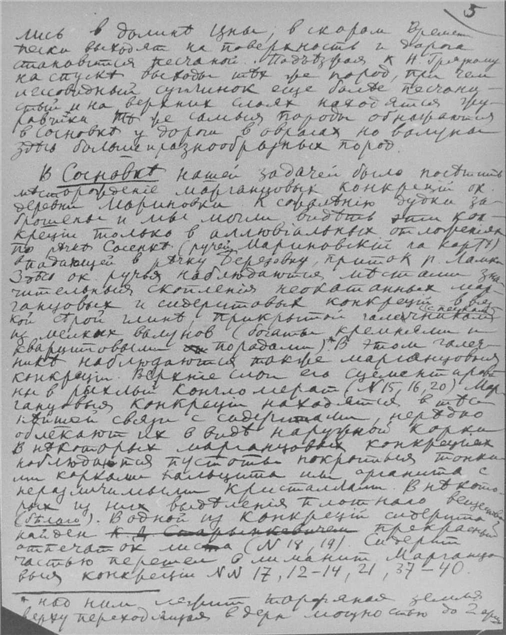 5
лись в долинѣ Цны, в скором времени
пески выходят на поверхность и дорога
становится песчаной. Подъѣзжая к Н. Грязному
на спускѣ выходы тѣх же пород, при чем
лессовидный суглинок еще болѣе песчанис-
тый и на верхних слоях находятся
Тѣ же самыя породы обнажаются
в Сосновкѣ у дороги в оврагах но валуны
здѣсь больше и разнообразных пород.
В Сосновкѣ нашей задачей было посѣтить
мѣсторождение марганцовых конкреций ок.
деревни Мариновки к сожалѣнию дудки за-
брошены и мы могли видѣть эти кон-
креции только в аллювиальных отложениях
по рѣчкѣ Сосенкѣ (ручей Мариновский на картѣ)
впадающей в рѣчку Березовку приток р. Ламки
Здѣсь ок ручья наблюдаются мѣстами зна-
чительныя скопления неокатанных мар-
ганцовых и сидеритовых конкреций в вяз-
кой глинѣ прикрытой галечником
из мелких валунов (богаты кремнями и
кварцитовыми породами)* В этом галеч-
никѣ наблюдаются также марганцовыя
конкреции. Верхние слои его сцементирова-
ны в рыхлый конгломерат (N 15, 16, 20) Мар-
ганцовыя конкреции находятся в тѣс-
нѣйшей связи с сидеритами, нерѣдко
облекают их в видѣ наружной корки
В нѣкоторых марганцовых конкрециях
наблюдаются пустоты покрытыя тонки-
ми корками вальцита или аргонита с
неразличимыми кристаллами. В нѣкото-
рых из них выдѣления плотнаго вещества
(бѣлаго). В одной из конкреций сидерита
найден прекрасный
отпечаток листа (N 18, 19). Сидерит
частью перешел в лимонит. Марганцо-
выя конкреции NN 17, 12-14, 21, 37-40.
* над ним лежит торфяная земля
вверху переходящая в дерн мощностью до 2 арш